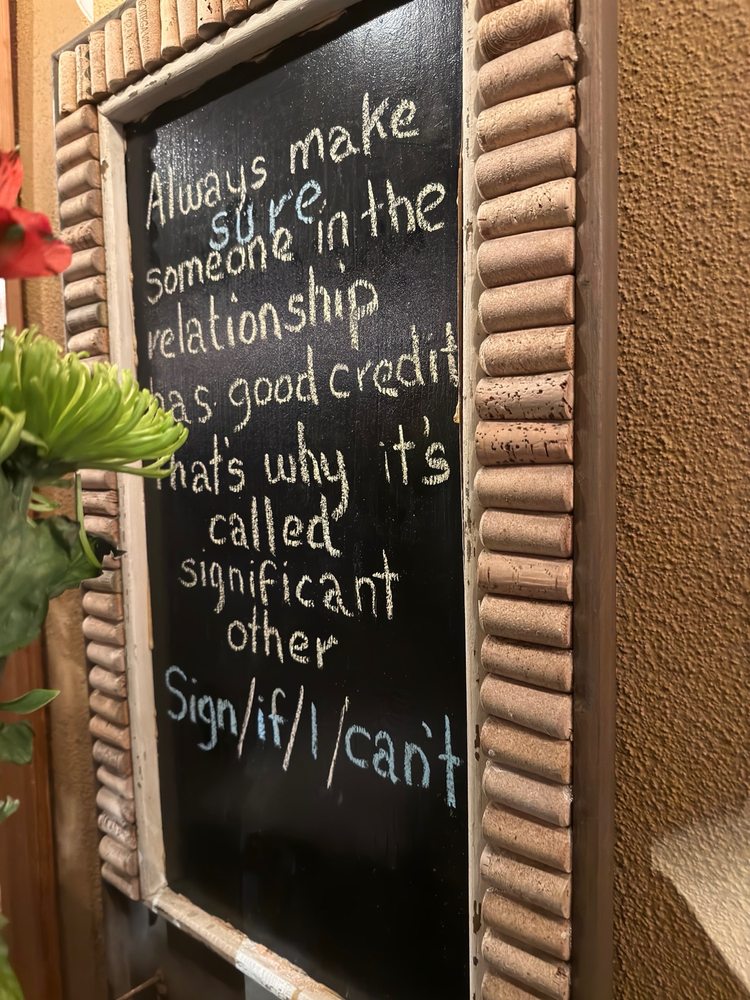 Always make
sure
someone in the
relationship
has good credit
That's why it's
called
significant
other
Sign/if/I/can't